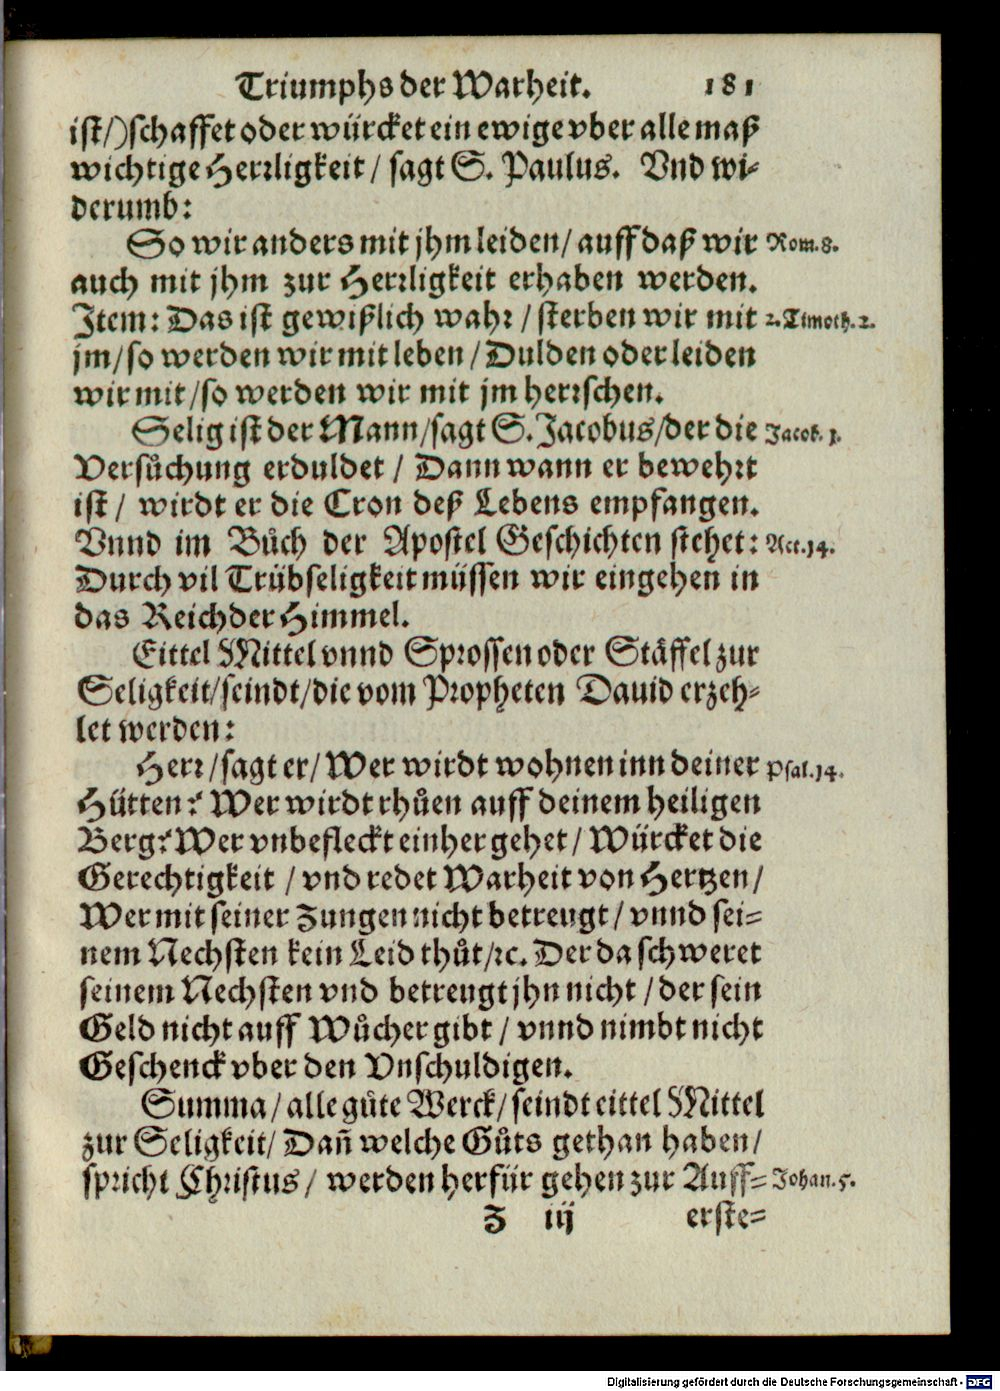 Triumphs der Warheit. 181
ist/) schaffet oder würcket ein ewige vber alle maß
wichtige Herrligkeit / sagt S. Paulus. Vnd wi-
derumb:
So wir anders mit jhm leiden / auff daß wir Rom. 8.
auch mit jhm zur Herrligkeit erhaben werden.
Item: Das ist gewißlich wahr / sterben wir mit 2. Timoth. 2.
jm / so werden wir mit leben / Dulden oder leiden
wir mit / so werden wir mit jm herrschen.
Selig ist der Mann / sagt S. Jacobus / der die Jacob. 1.
Versůchung erduldet / Dann wann er bewehrt
ist / wirdt er die Cron deß Lebens empfangen.
Vnnd im Bůch der Apostel Geschichten stehet: Act. 14.
Durch vil Trübseligkeit müssen wir eingehen in
das Reich der Himmel.
Eittel Mittel vnnd Sprossen oder Stäffel zur
Seligkeit / seindt / die vom Propheten Dauid erzeh-
let werden:
Herr / sagt er / Wer wirdt wohnen inn deiner Psal. 14.
Hütten? Wer wirdt rhůen auff deinem heiligen
Berg? Wer vnbefleckt einher gehet / Würcket die
Gerechtigkeit / vnd redet Warheit von Hertzen /
Wer mit seiner Zungen nicht betreugt / vnnd sei-
nem Nechsten kein Leid thůt / ꝛc. Der da schweret
seinem Nechsten vnd betreugt jhn nicht / der sein
Geld nicht auff Wůcher gibt / vnnd nimbt nicht
Geschenck vber den Vnschuldigen.
Summa / alle gůte Werck / seindt eittel Mittel
zur Seligkeit / Dañ welche Gůts gethan haben /
spricht Christus / werden herfür gehen zur Auff- Johan. 5.
Z iij erste-
Digitalisierung gefördert durch die Deutsche Forschungsgemeinschaft - DFG